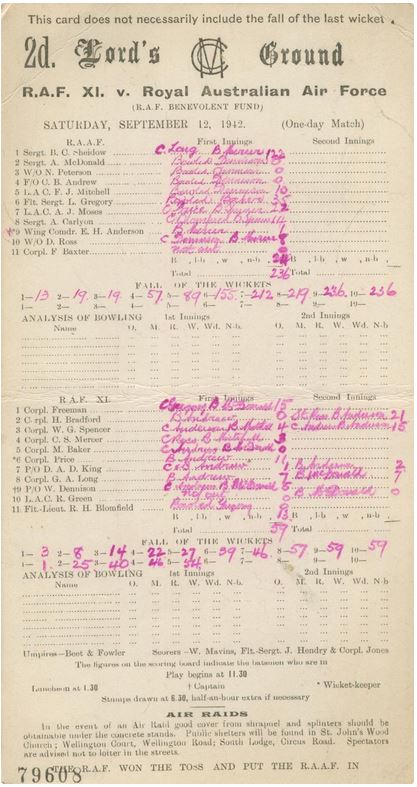 This card does not necessarily include the fall of the last wicket.
2d. Lord's MCC Ground
R.A.F. XI. v. Royal Australian Air Force
(R.A.F. BENEVOLENT FUND)
SATURDAY, SEPTEMBER 12, 1942. (One-day Match)
R.A.A.F. First Innings Second Innings
1 Sergt. B. C. Sheidow C. Long B. Mercer
2 Sergt. A. McDonald Bowled Dennison
3 W/O N. Peterson Bowled 0
4 F/O C. B. Andrew Bowled Dennison 0
5 L.A.C F. J. Mitchell Bowled 10
6 Flt. Sergt. L. Gregory Bowled
7 L.A.C. A. J. Moses B. Spencer
8 Sergt. A. Carlyon
†*9 Wing Comdr. E. H. Anderson B. Mercer 1
10 W/O D. Ross C Dennison B. Mercer 8
11 Corpl. F Baxter Not out 0
B , l-b , w , n-b ,
Total 236 Total
FALL OF THE WICKETS
1—13 2—19 3—19 4—57 5—89 6—155 7—212 8—219 9—236 10—236
1— 2— 3— 4— 5— 6— 7— 8— 9— 10—
ANALYSIS OF BOWLING 1st Innings 2nd Innings
Name O. M. R. W. Wd. N-b O. M. R. W. Wd. N-b
R.A.F. XI. First Innings Second Innings
1 Corpl. Freeman C Gregory B. McDonald 15
2 Corpl. H. Bradford B Andrew 0 St Ross B Anderson 21
3 Corpl. W. G. Spencer C Anderson B. 4 C Andrew B Anderson 15
4 Corpl. C. S. Mercer C Ross B Mitchell 3
5 Corpl. M. Baker C B McDonald 0
*6 Corpl. Price B Andrew 11
7 P/O D. A. D. King C & B Andrew 1 B. Anderson 2
8 Corpl. G. A. Long B Andrew 7 B McDonald 7
†9 P/O W. Dennison B McDonald 5
10 L.A.C. R. Green Not out 0 B McDonald 0
11 Flt.-Lieut. R. H. Blomfield Bowled Gregory 0
B , l-b , w , n-b , 13 B , l-b , w , n-b ,
Total 59 Total
FALL OF THE WICKETS
1—3 2—8 3—14 4—22 5—27 6—39 7—46 8—57 9—59 10—59
1—1 2—25 3—40 4—46 5—54 6— 7— 8— 9— 10—
ANALYSIS OF BOWLING 1st Innings 2nd Innings
Name O. M. R. W. Wd. N-b. O. M. R. W. Wd. N-b
Umpires—Beet & Fowler Scorers—W. Mavins, Flt.-Sergt. J. Hendry & Corpl. Jones
The figures on the scoring board indicate the batsmen who are in
Play begins at 11.30
Luncheon at 1.30 † Captain * Wicket-keeper
Stumps drawn at 6.30, half-an-hour extra if necessary
AIR RAIDS
In the event of an Air Raid good cover from shrapnel and splinters should be
obtainable under the concrete stands. Public shelters will be found in St. John's Wood
Church; Wellington Court, Wellington Road; South Lodge, Circus Road. Spectators
are advised not to loiter in the streets.
79608
THE R.A.F. WON THE TOSS AND PUT THE R.A.A.F. IN